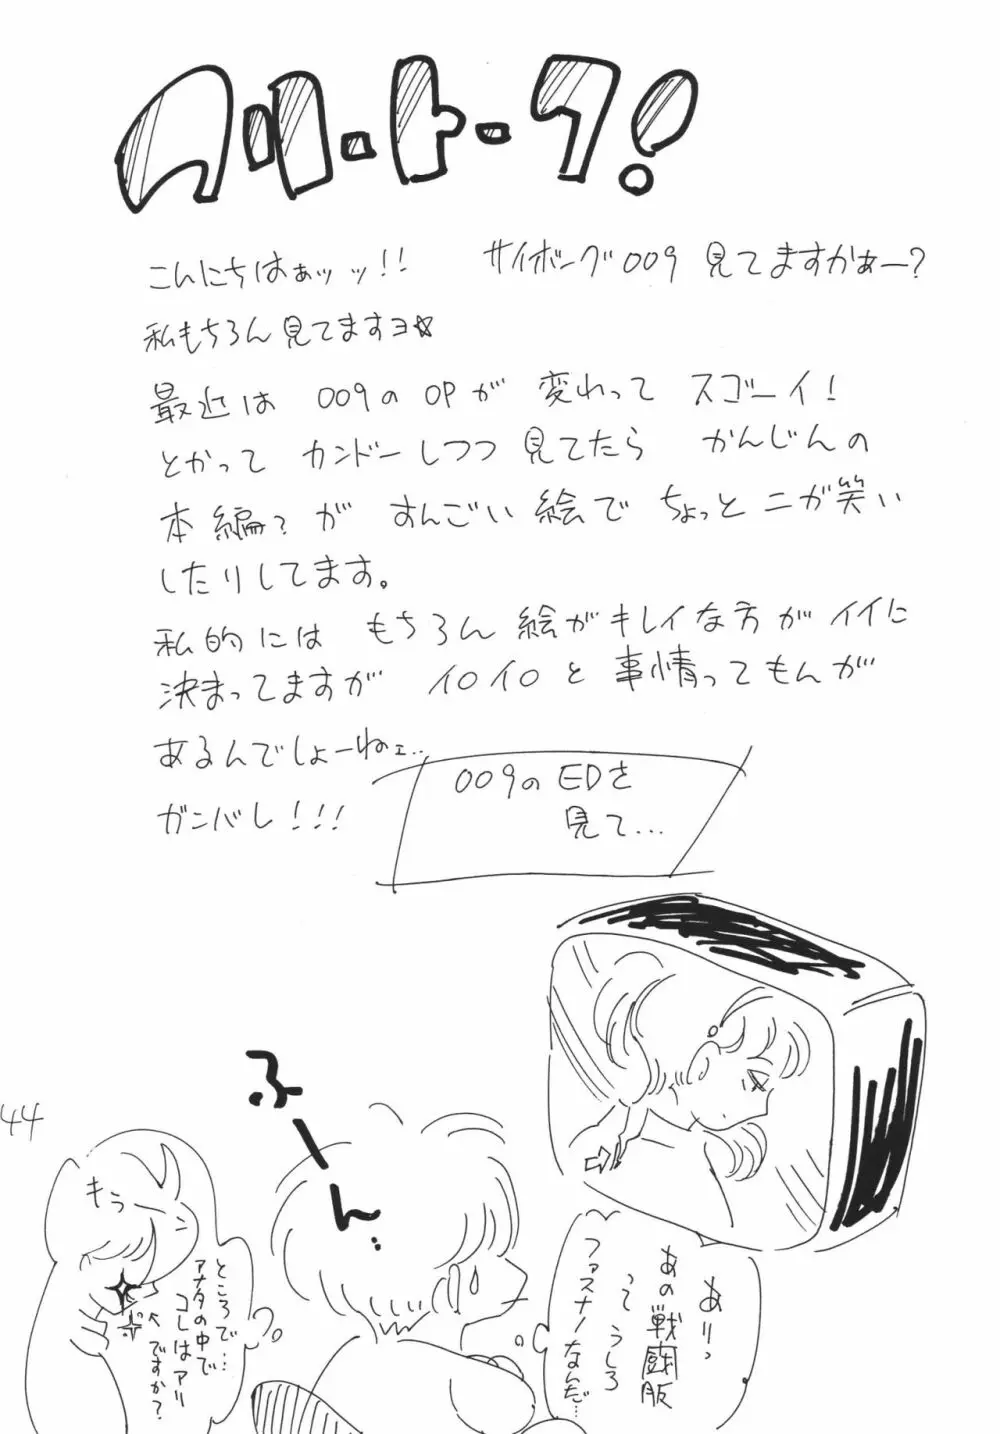 フリートーク!
こんにちはぁッッ!! サイボーグ009 見てますかぁー?
私もちろん見てますヨ☆
最近は 009のOPが 変わって スゴーイ!
とかって カンドーしつつ 見てたら かんじんの
本編?が すんごい絵で ちょっとニガ笑い
したりしてます。
私的には もちろん 絵がキレイな方がイイに
決まってますが イロイロと事情ってもんが
あるんでしょーねェ…
ガンバレ!!!
009のEDを
見て…
ふーん…
あリっ
あの戦闘服
って うしろ
ファスナーなんだ…
もぅ
ところで…
アナタの中で
コレはアリ
ですか?
44